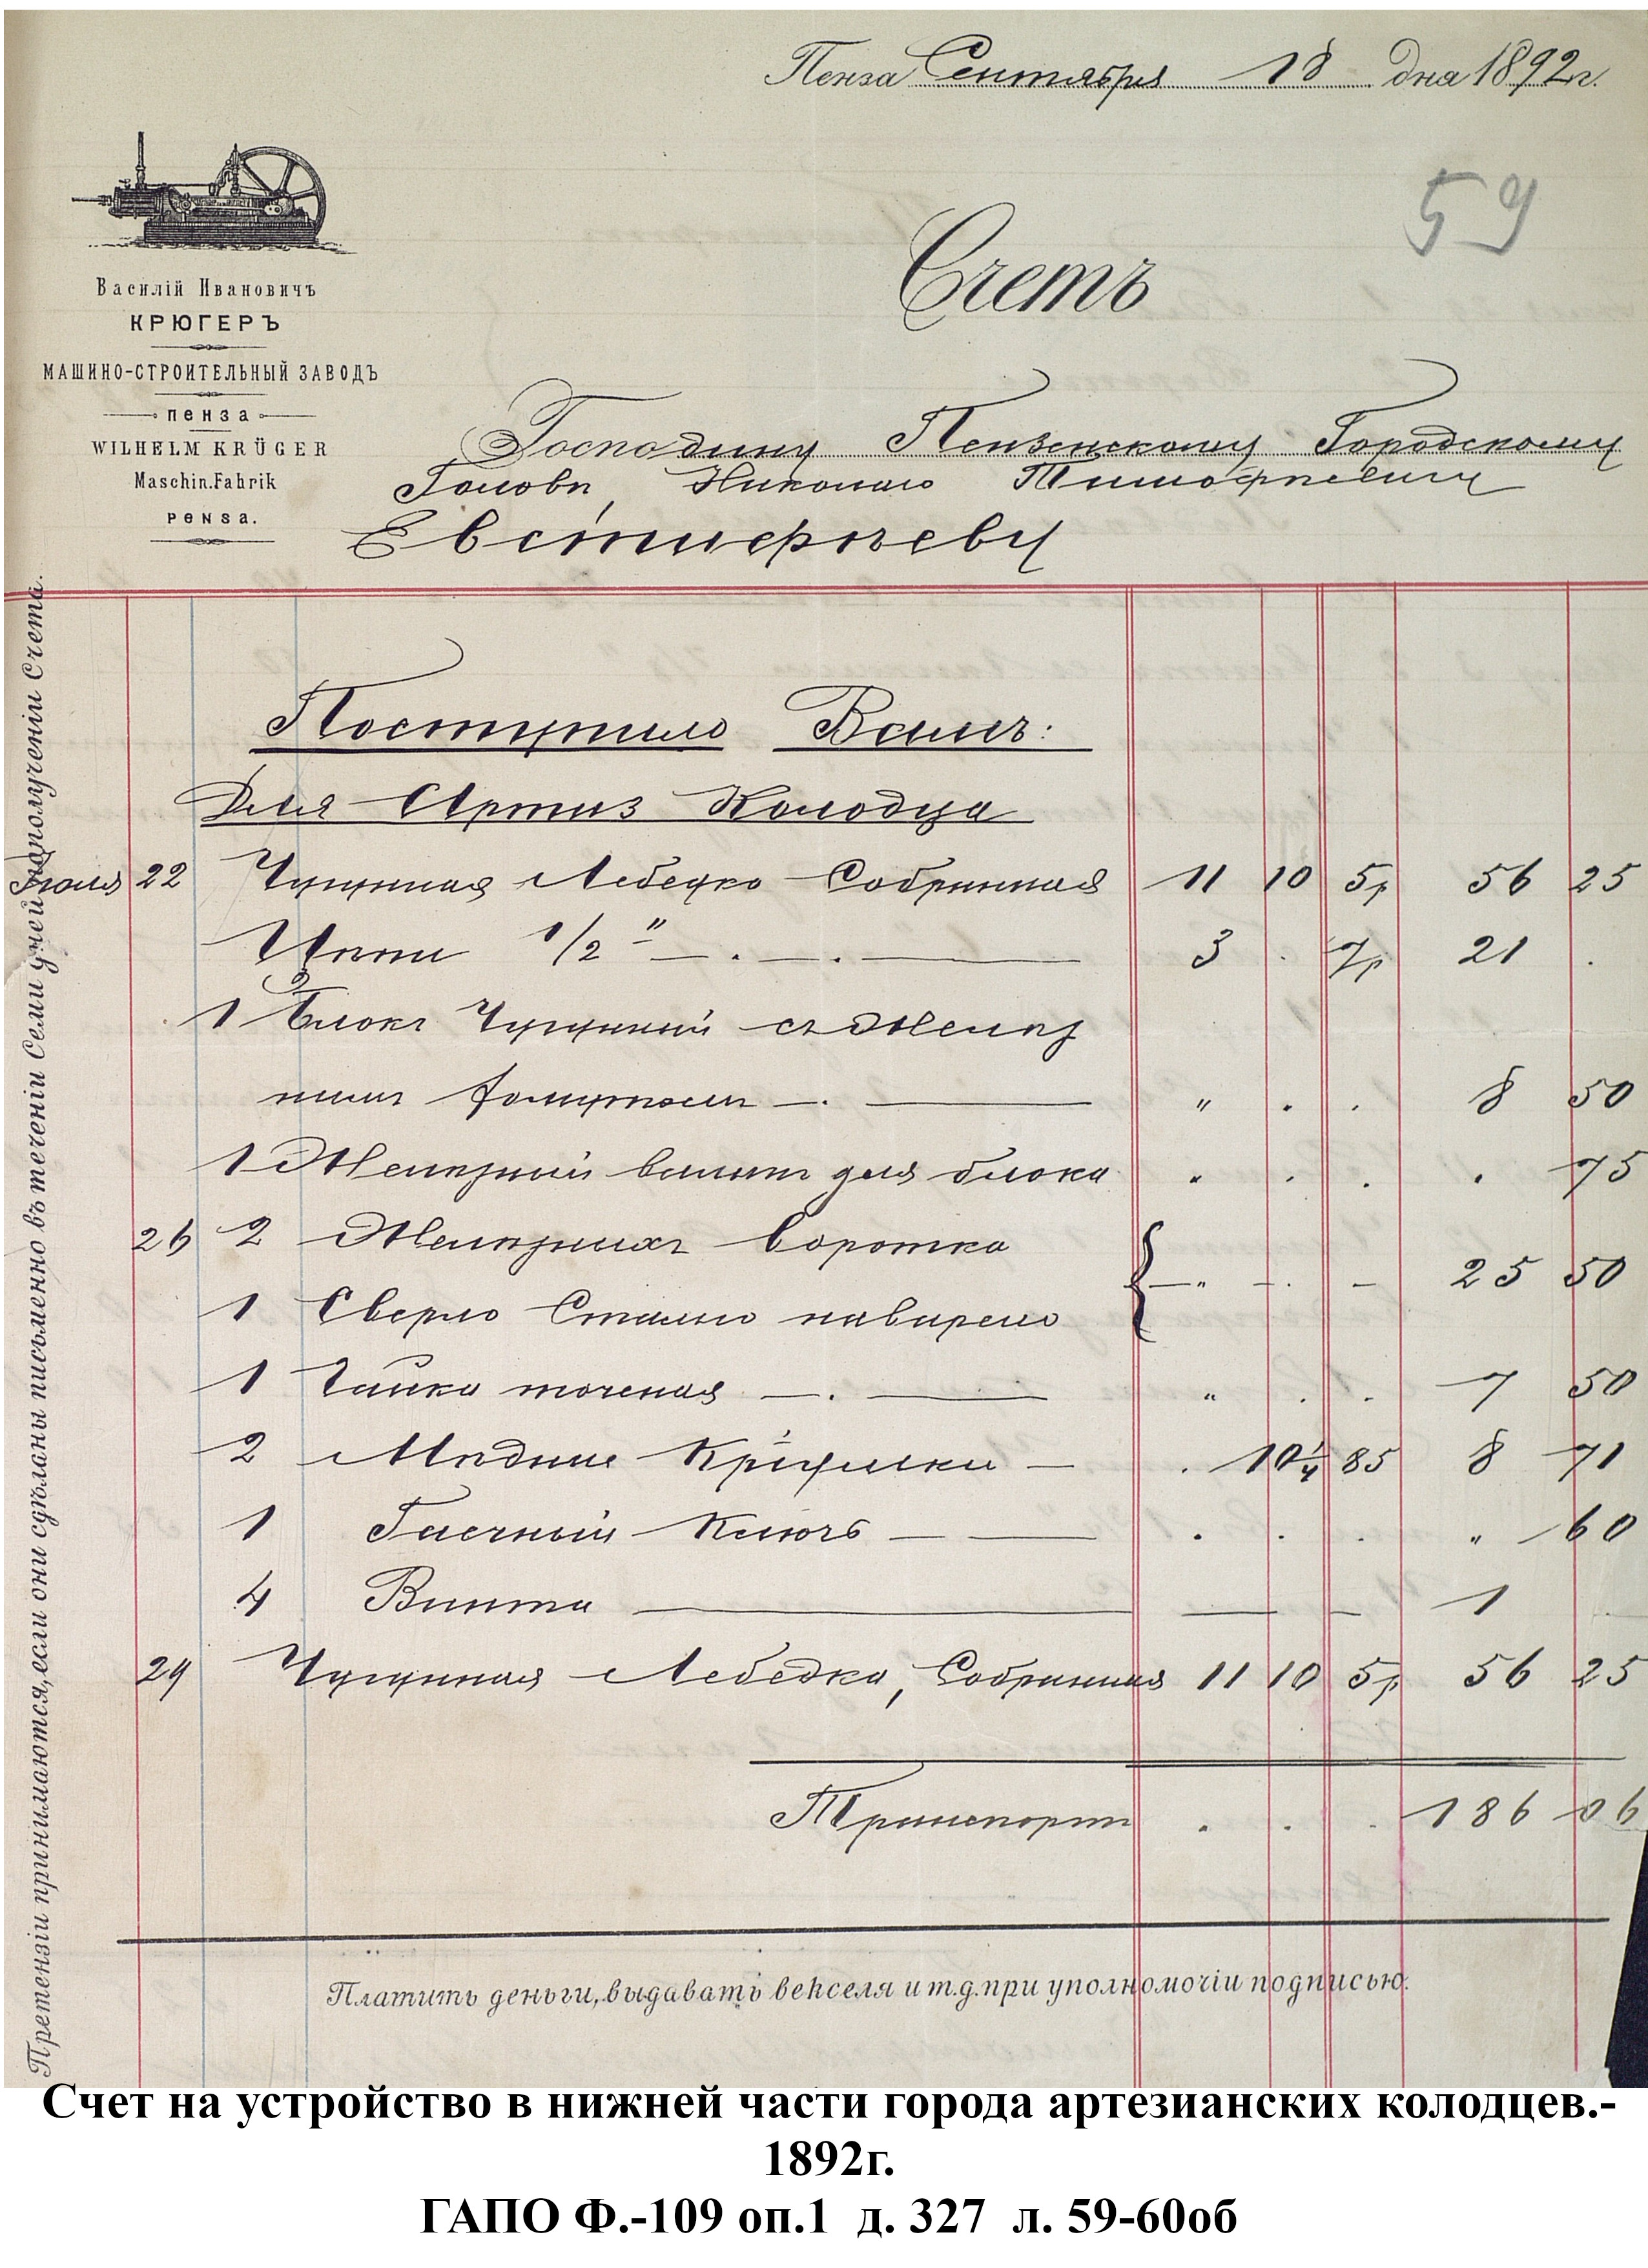 Пенза Сентября 18 дня 1892 г.
59
Василій Ивановичъ
КРЮГЕРЪ
МАШИНО-СТРОИТЕЛЬНЫЙ ЗАВОДЪ
ПЕНЗА
WILHELM KRÜGER
Maschin.Fabrik
PENSA.
Счетъ
Господину Пензенскому Городскому
Головѣ, Николаю Тимофѣевичу
Евстифѣеву
Поступило Вамъ:
Для Артиз Колодца
Іюля 22 Чугунная Лебедка Собранная 11 10 5р 56 25
Цѣпи 1/2" — . — . — 3 . 7р 21 .
1 Блокъ Чугунный съ Желѣз
нымъ Хомутомъ — . — " . . 8 50
1 Желѣзный валикъ для блока " . . . 75
26 2 Желѣзныхъ воротка
1 Сверло Сталью наварено } — " — . — 25 50
1 Гайка точеная — . — " . . 7 50
2 Мѣдные Крышки — . 10 1/4 85 8 71
1 Гаечный Ключъ — — . . . " 60
4 Винта — — — 1
29 Чугунная Лебедка, Собранная 11 10 5р 56 25
Транспортъ . . . 186 06
Платить деньги, выдавать векселя и т.д. при уполномочіи подписью.
Претензіи принимаются, если они сдѣланы письменно въ теченіи Семи дней по полученіи Счета.
Счет на устройство в нижней части города артезианских колодцев.-
1892г.
ГАПО Ф.-109 оп.1 д. 327 л. 59-60об